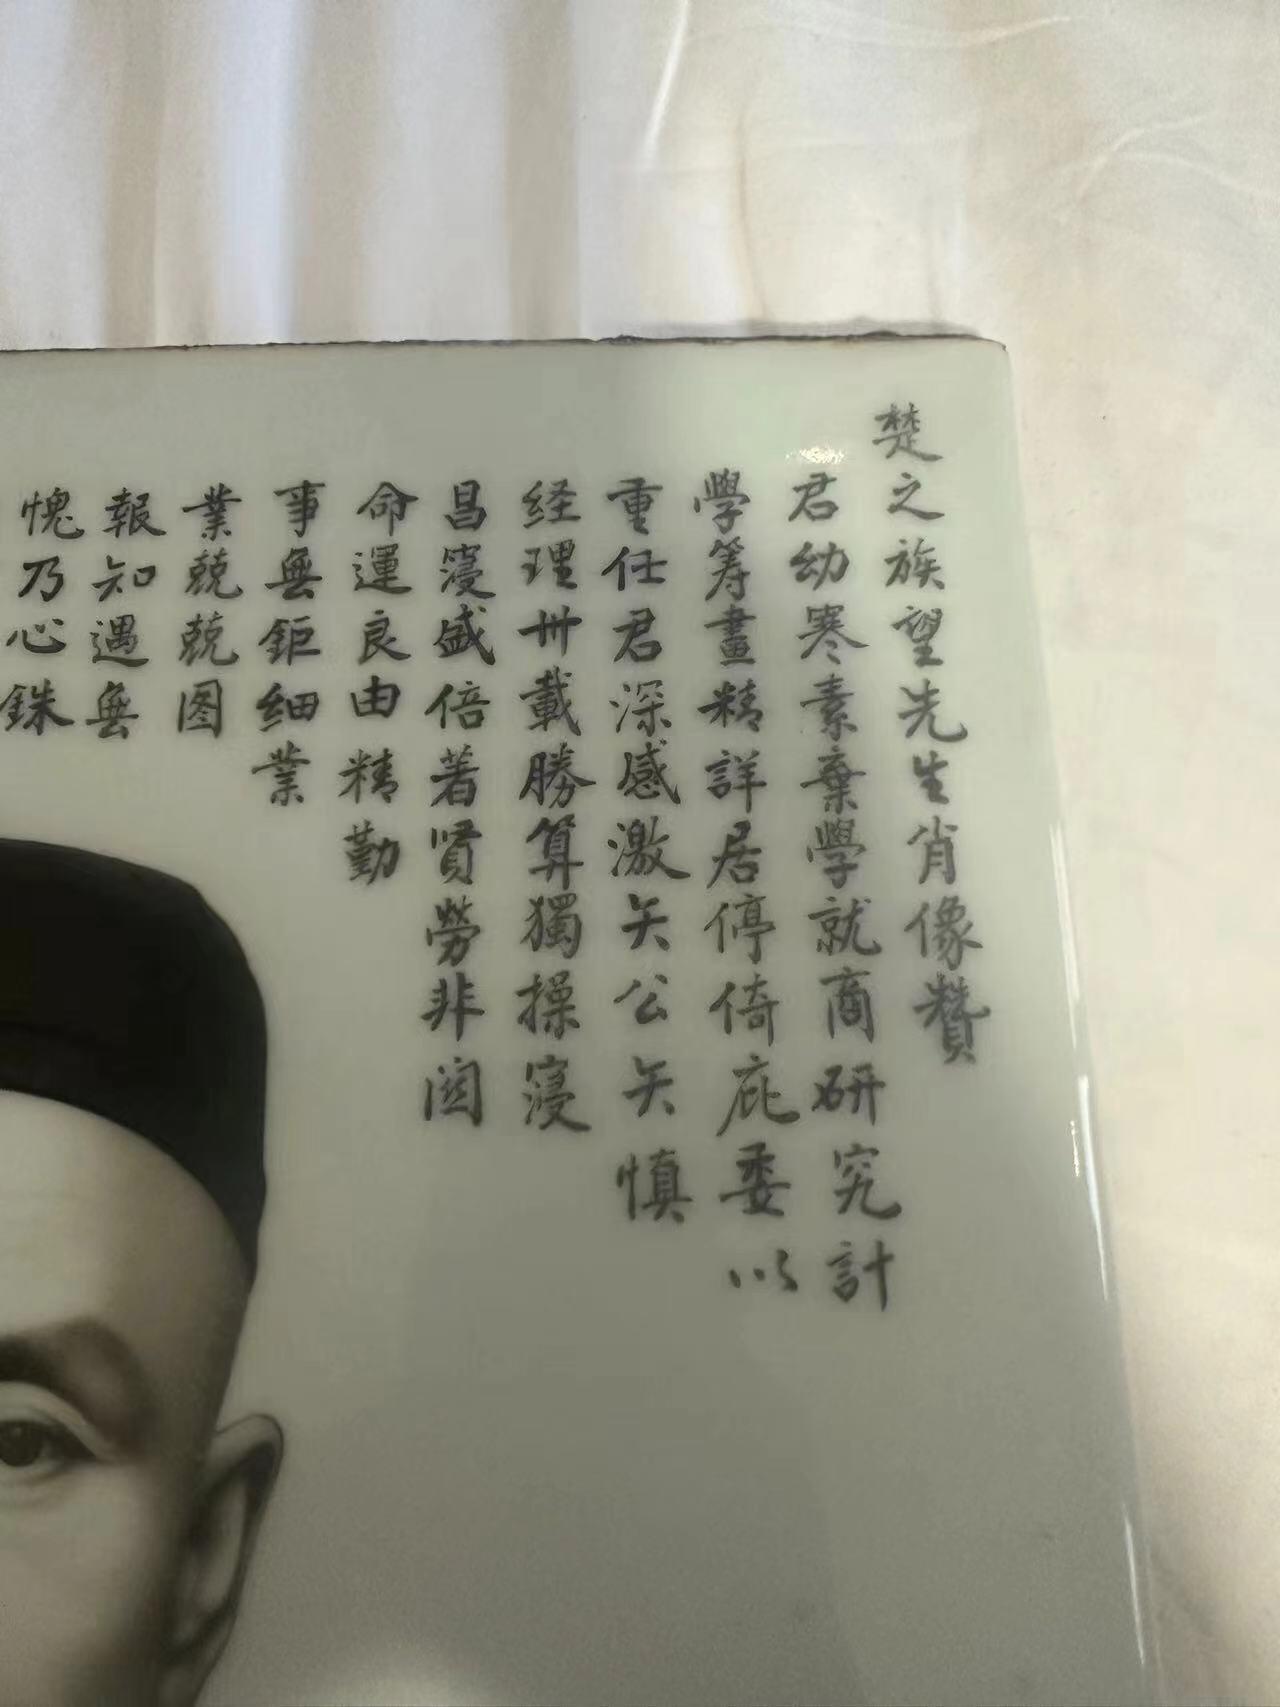 楚之族望先生肖像赞
君幼寒素棄學就商研究計
學筹畫精詳居停倚庇委以
重任君深感激矢公矢慎
経理卅載勝算獨操寖
昌寖盛倍著贤勞非関
命運良由精勤
事無鉅细業
業兢兢图
報知遇無
愧乃心銖